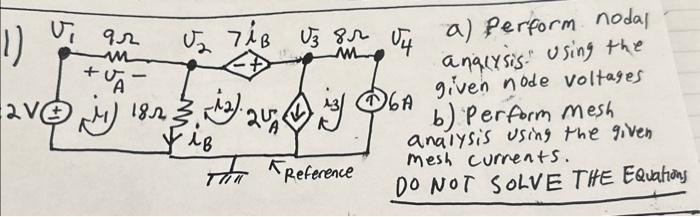 1)
υ₁ 9Ω υ₂ 7i_B υ₃ 8Ω υ₄
+ υ_A −
2V ± i₁ 18Ω i₂ 2υ_A i₃ 6A
i_B
Reference
a) Perform nodal
analysis using the
given node voltages
b) Perform mesh
analysis using the given
mesh currents.
DO NOT SOLVE THE Equations